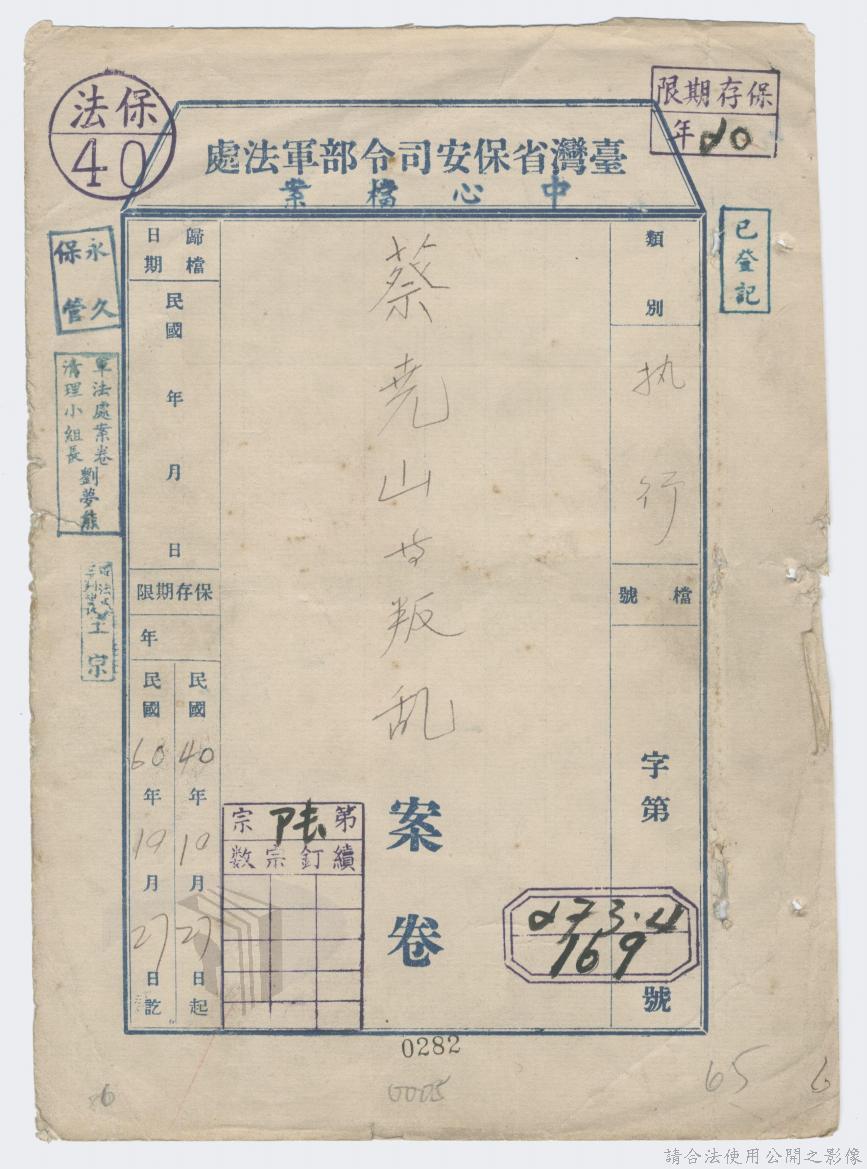 保法
40
保存期限
20年
臺灣省保安司令部軍法處
中心檔案
已登記
永久保管
軍法處案卷
清理小組長 劉夢熊
王宗
類別
执行
檔號
字第
273.4
169
號
蔡尧山等叛乱
案卷
歸檔日期
民國 年 月 日
保存期限
年
民國40年10月27日起
民國60年10月27日訖
第 宗
續釘宗數
0282
0005
65
6
6
請合法使用公開之影像